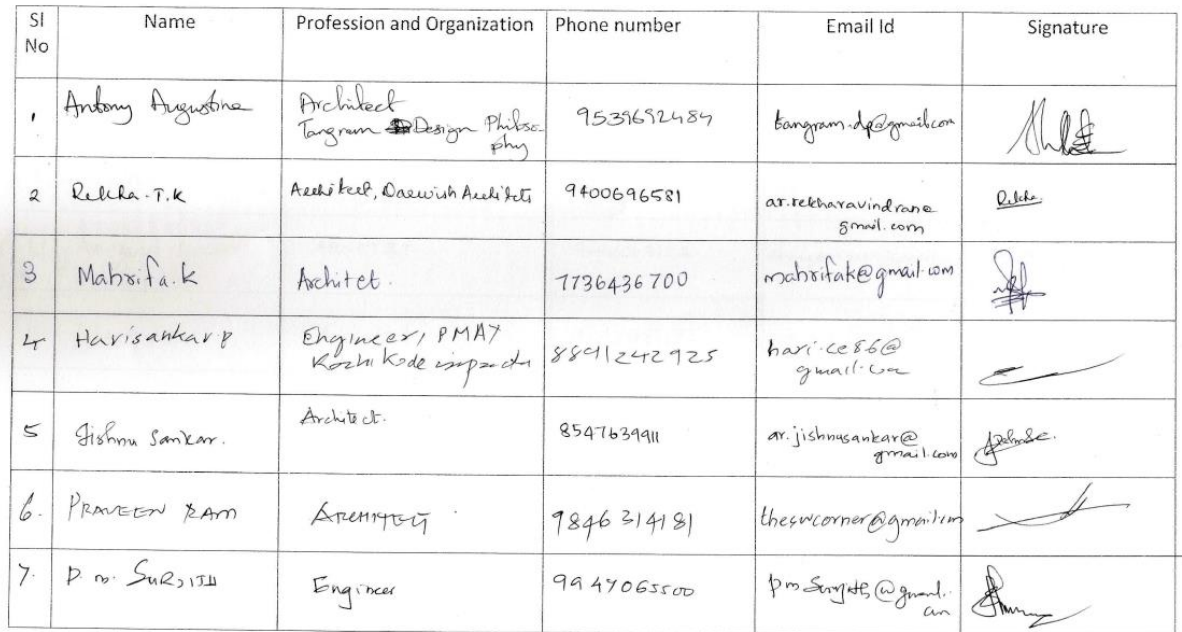 Sl No Name Profession and Organization Phone number Email Id Signature
1 Antony Augustine Architect Tangram Design Philosophy 9539692484 tangram.dp@gmail.com
2 Rekha.T.K Architect, Daewish Architects 9400696581 ar.rekharavindran@gmail.com Rekha
3 Mahrifa.k Architet. 7736436700 mahrifak@gmail.com
4 Harisankar P Engineer, PMAY Kozhikode 8891242925 hari.ce86@gmail.com
5 Jishnu Sankar. Architect. 8547639911 ar.jishnusankar@gmail.com
6. PRAVEEN RAM ARCHITECT 9846314181 theswcorner@gmail.com
7. P. M. SURJITH Engineer 9947065500 @gmail.com